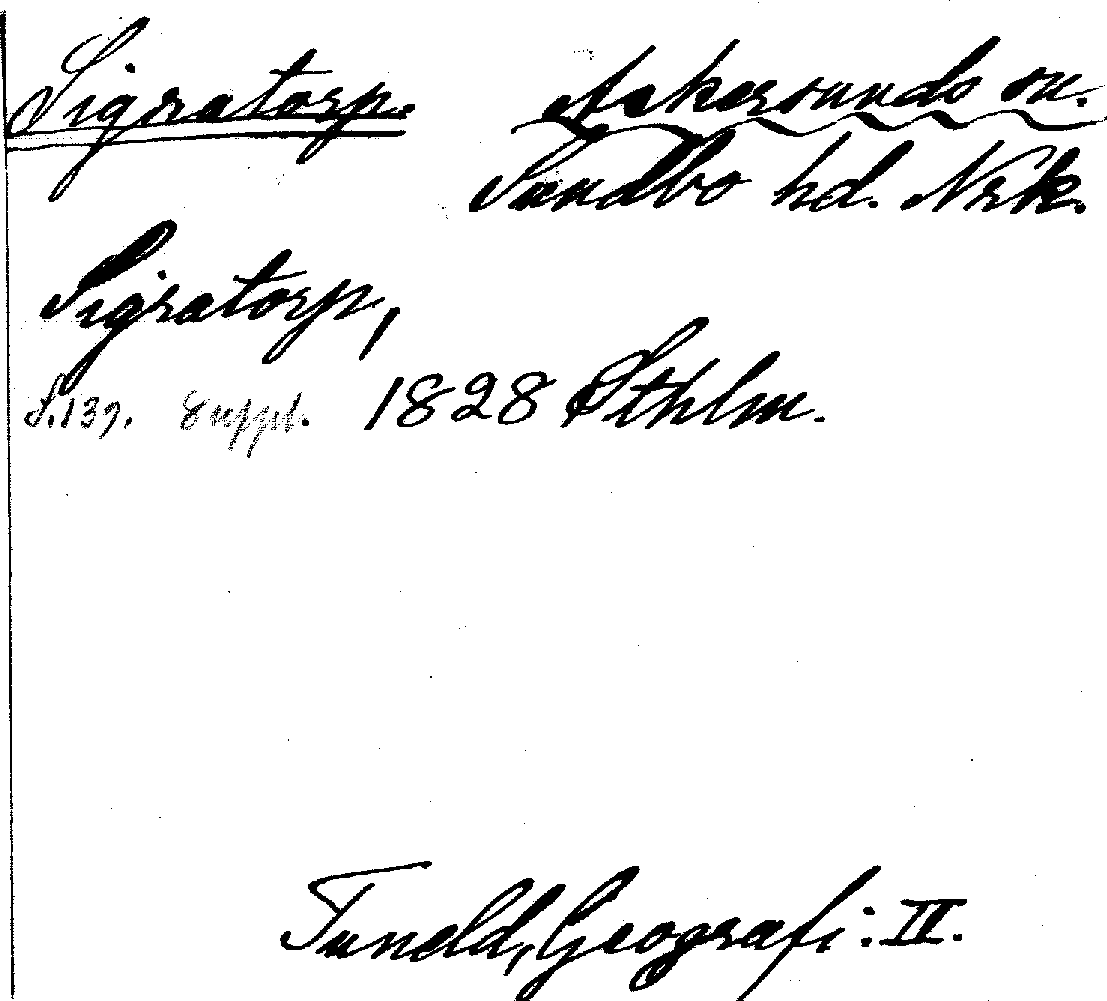 Sigratorp. Askersunds sn.
Sundbo hd. Nrk.
Sigratorp,
S. 137. Suppl. 1828 Sthlm.
Tuneld, Geografi: II.